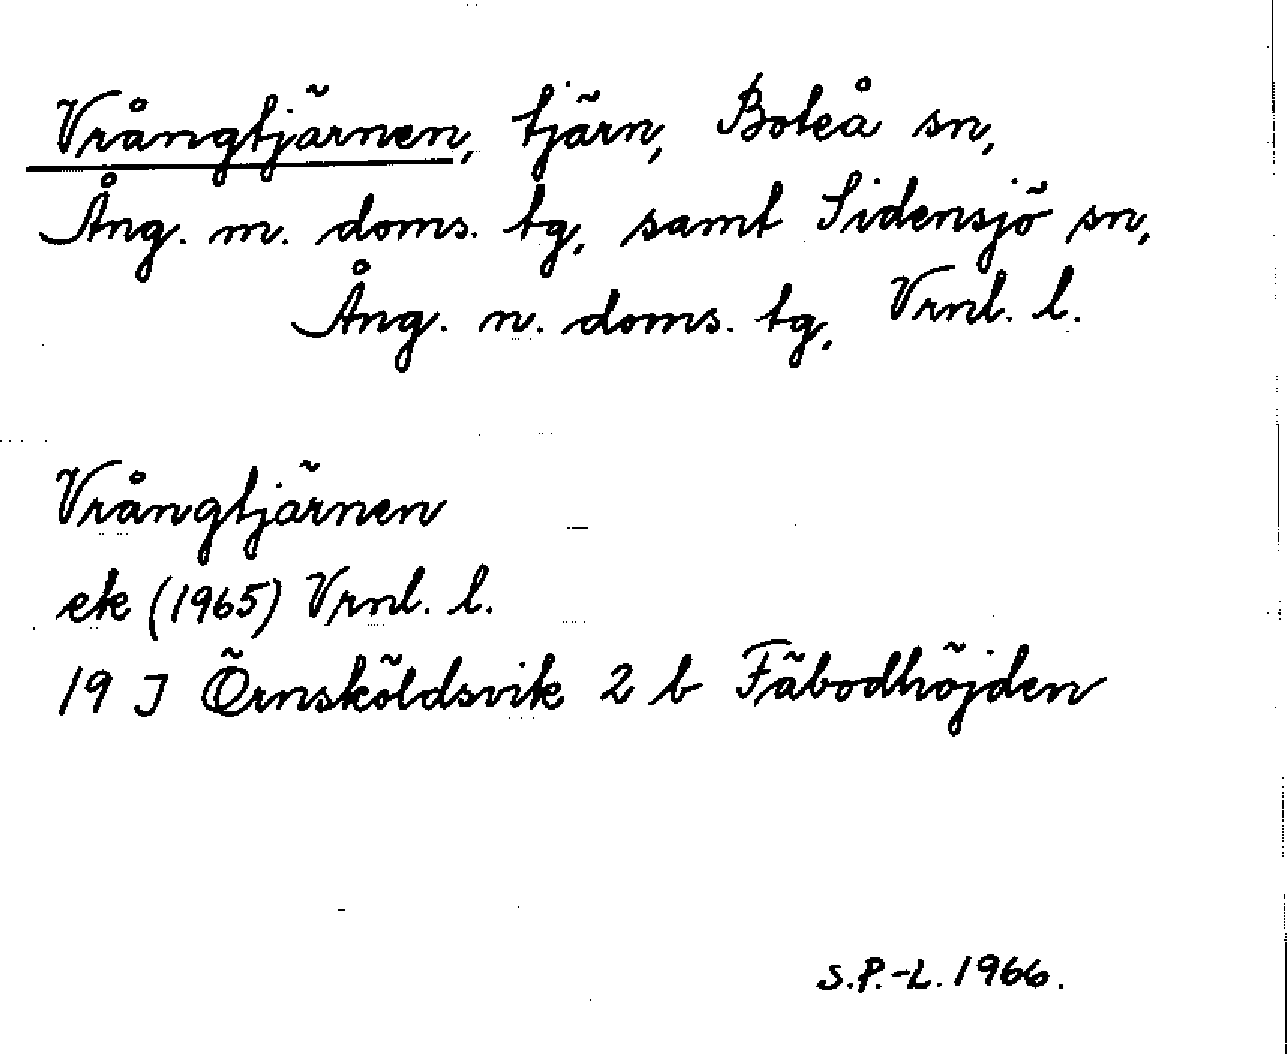 Vrångtjärnen, tjärn, Boteå sn,
Ång. m. doms. tg, samt Sidensjö sn,
Ång. n. doms. tg, Vrnl. l.
Vrångtjärnen
ek (1965) Vrnl. l.
19 J Örnsköldsvik 2 b Fäbodhöjden
S.P.-L. 1966.